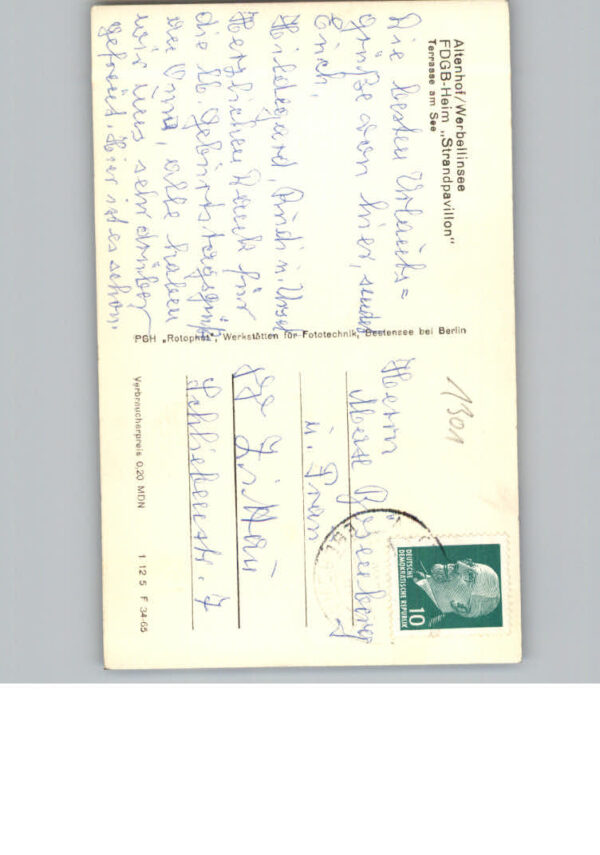 Altenhof/Werbellinsee
FDGB-Heim „Strandpavillon"
Terrasse am See
Die besten Urlaubs=
grüße von hier, sendet
Euch,
Hildegard, Rudi u. Ursel
Herzlichen Dank für
die lb. Geburtstagsgrüße
an Omi, alle haben
wir uns sehr drüber
gefreut. Hier ist es schön.
PGH „Rotophot", Werkstätten für Fototechnik, Bestensee bei Berlin
1301
DEUTSCHE
DEMOKRATISCHE REPUBLIK
10
Herrn
Max
u. Frau
Zittau
7
Verbraucherpreis 0,20 MDN
1 12 5 F 34-65